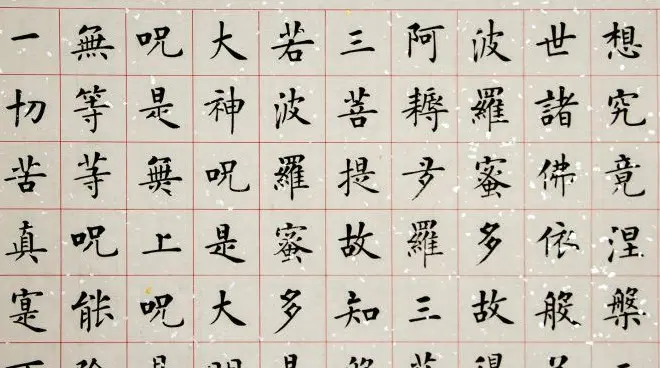 想究竟涅槃
世諸佛依般若
波羅蜜多故得
阿耨多羅三藐
三菩提故知般
若波羅蜜多是
大神呪是大明
呪是無上呪是
無等等呪能除
一切苦真寔不